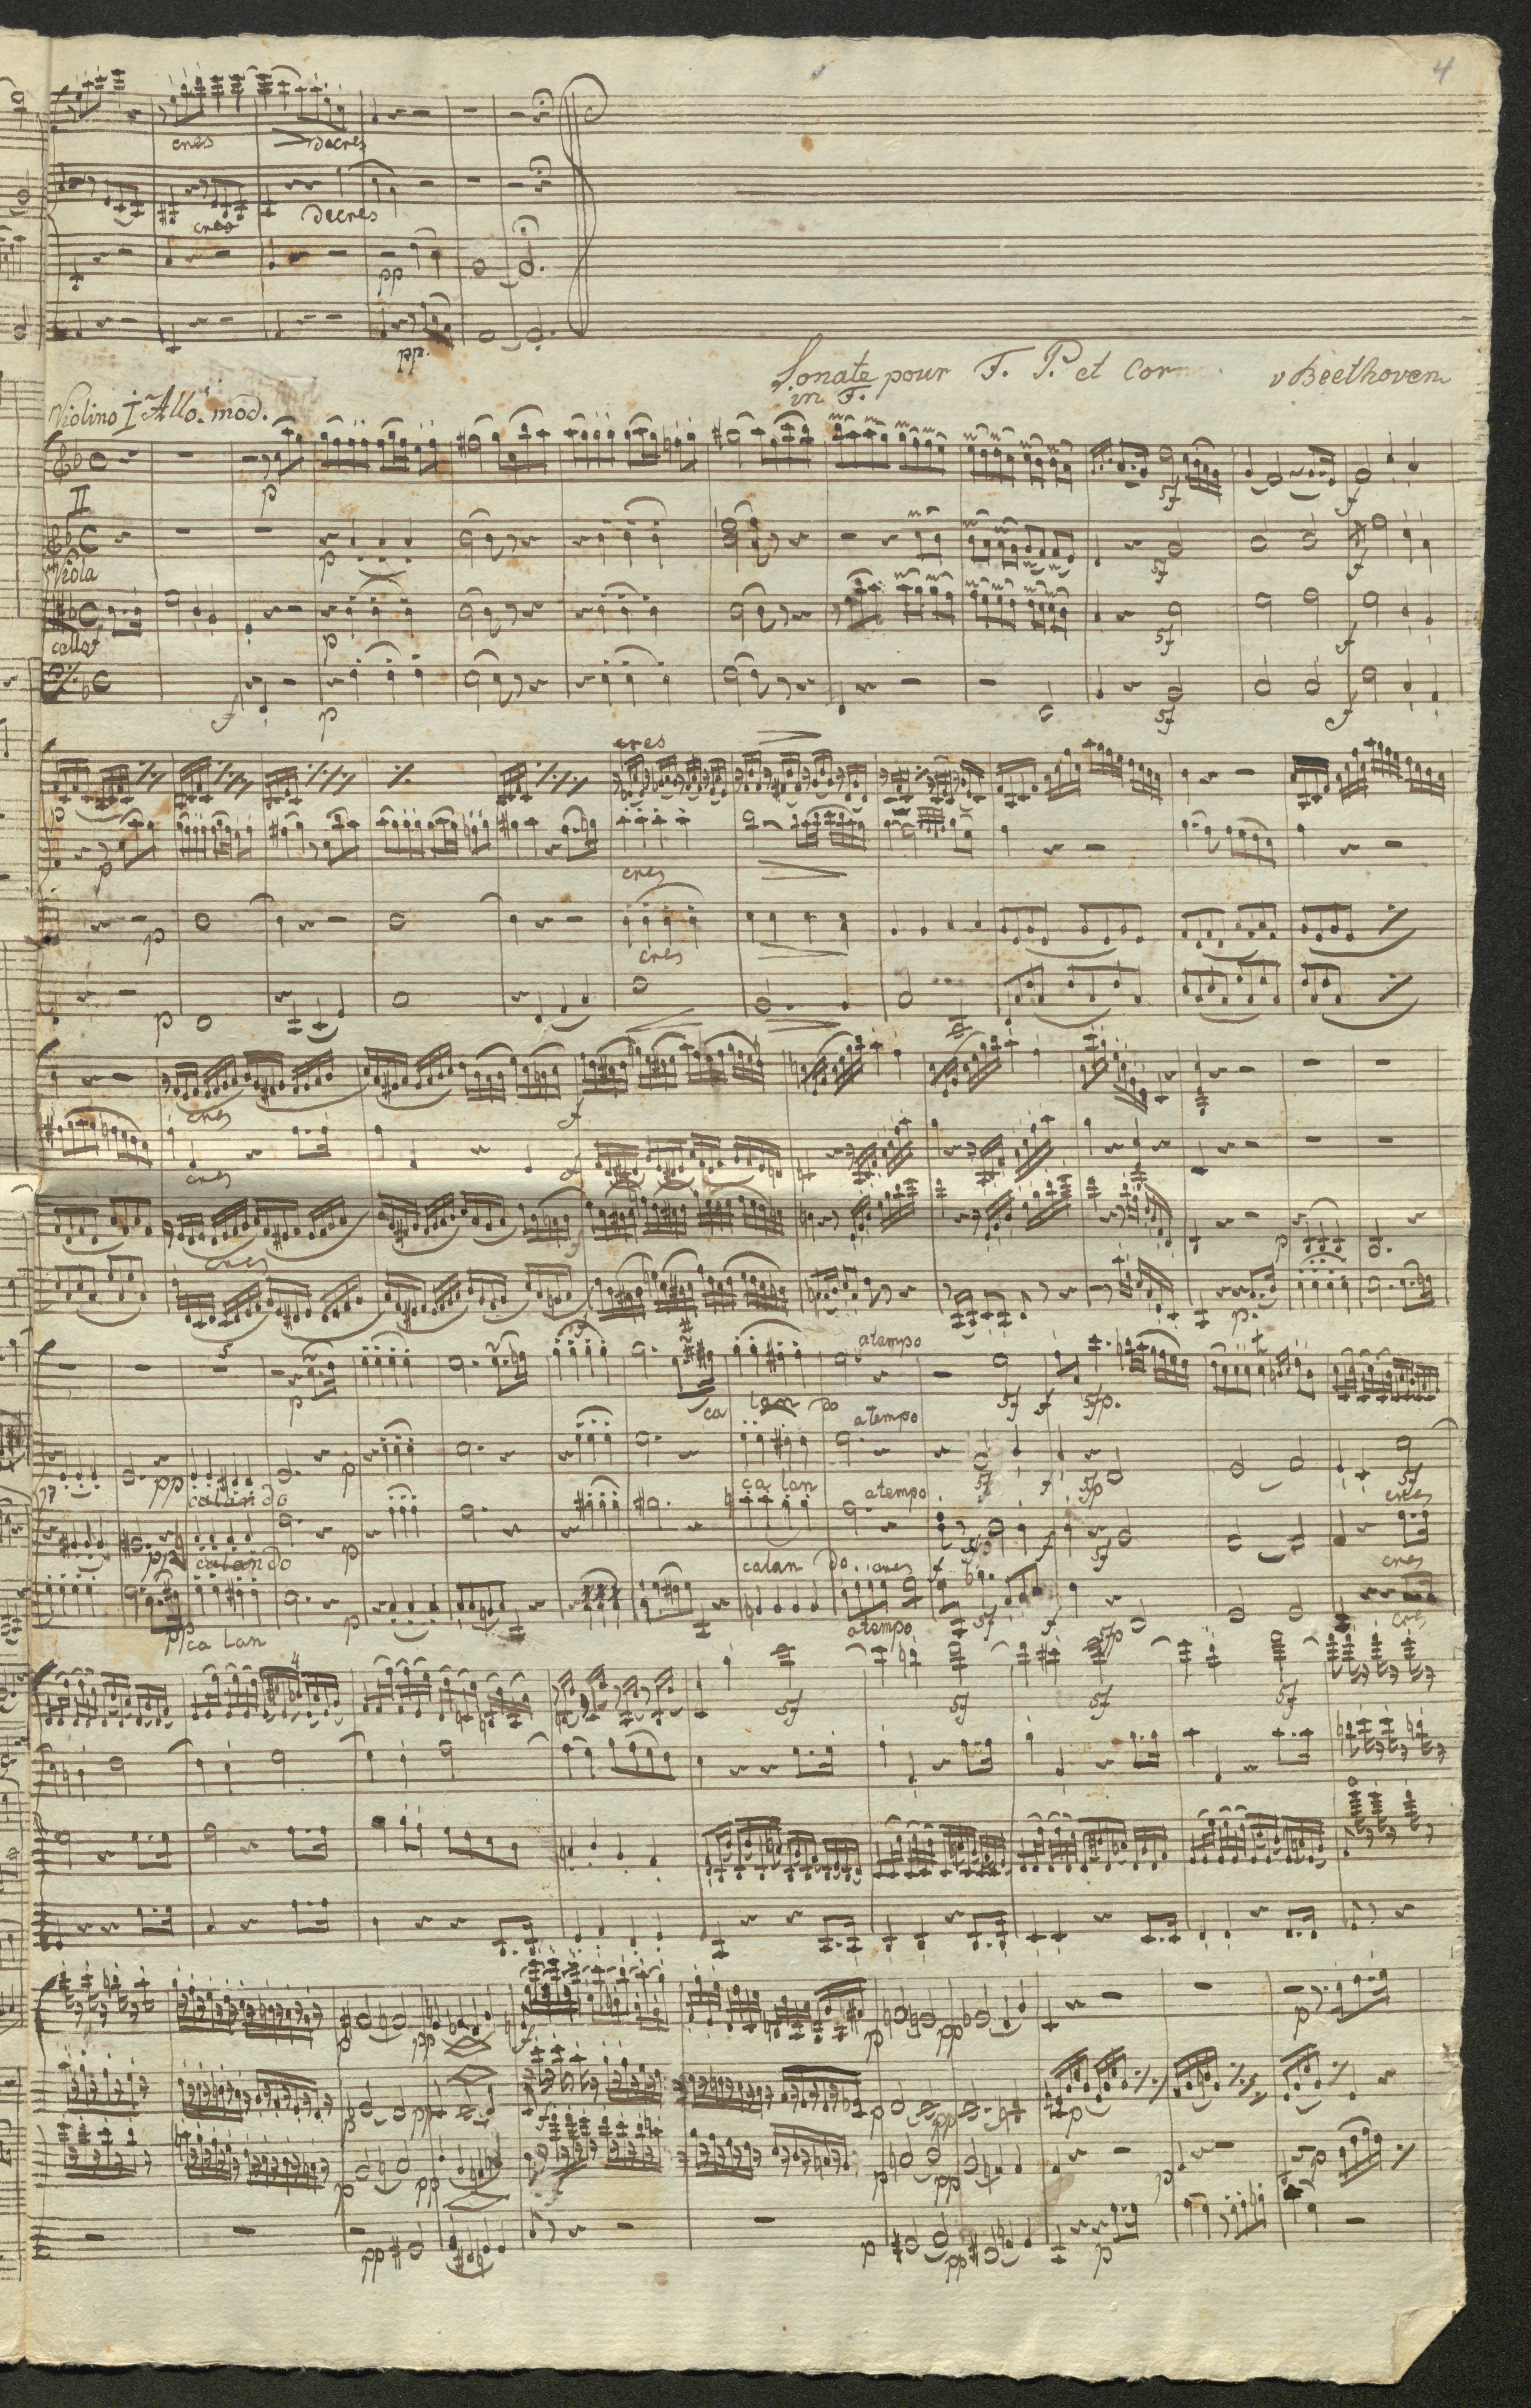 4
cres decres
cres decres
pp
pp.
Sonate pour F. P. et Corn v Beethoven
in F.
Violino I Allo. mod.
p sf f
II
p sf f
Viola
p sf f
cello
f p sf f
cres
p cres
p cres
p
cres f
cres f
cres p
p.
5 atempo
p ca lan do sf f sfp.
atempo
pp calando p ca lan sf f sfp sf
atempo cres
pp calando p calan do cres f sf cres
pp ca lan p atempo sf f sfp cres
4
sf sf sf sf
p pp f p pp p
p pp f p pp p
p pp p pp p p
pp p pp p